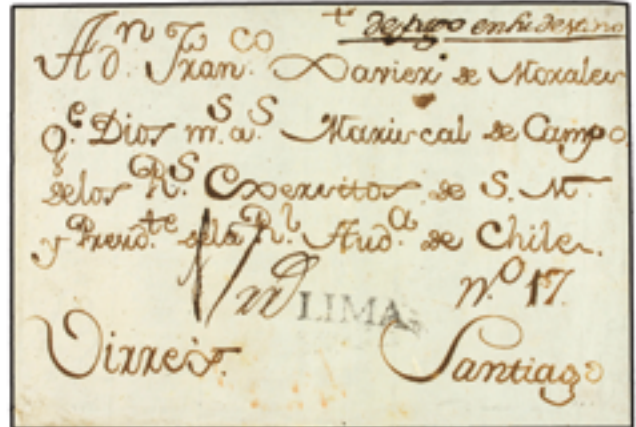 de pago en su destino
A Dn. Franco. Xavier de Morales
Qe. Dios ms. as. Mariscal de Campo
de los Rs. Exercitos de S. M.
y Presidte. de la Rl. Auda. de Chile.
LIMA
no. 17.
Virrey.
Santiago